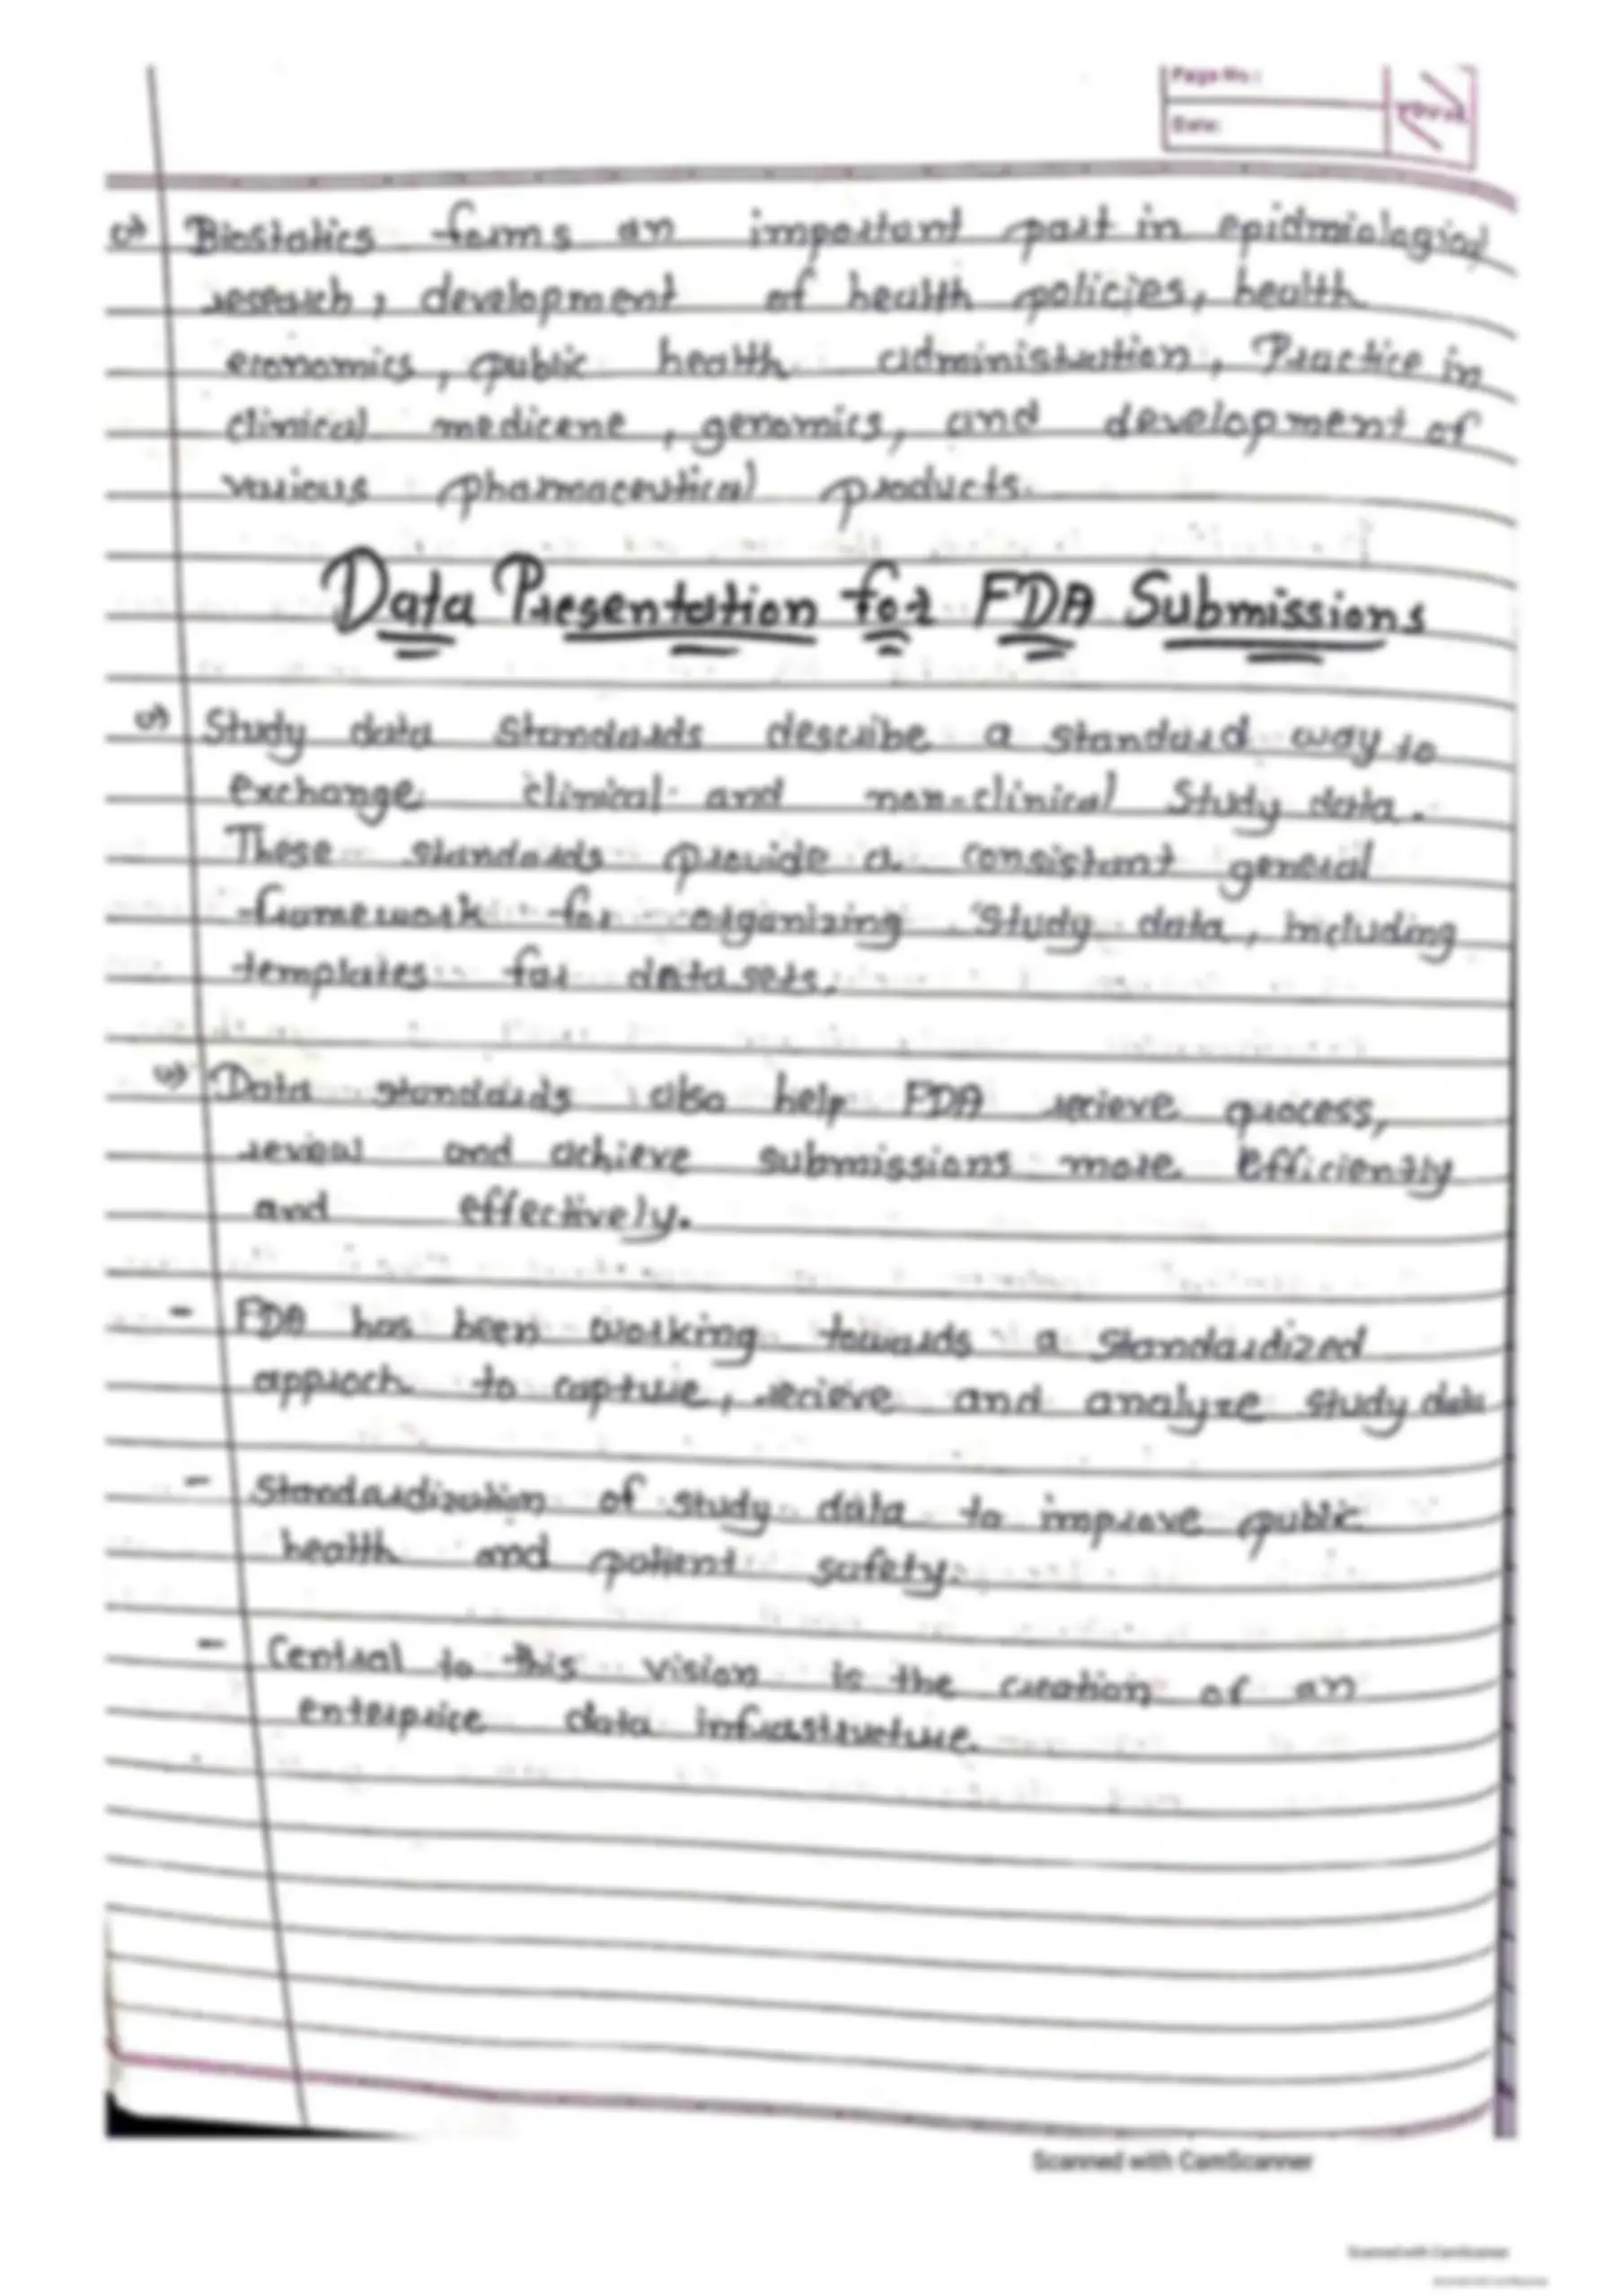 Page No.:
Date:
Biostatics forms an important part in epidmiological
research, development of health policies, health
economics, public health administration, Practice in
clinical medicene, genomics, and development of
various pharmaceutical products.
Data Presentation for FDA Submissions
Study data standards describe a standard way to
exchange clinical and non-clinical Study data.
These standards provide a consistant general
framework for organizing Study data, including
templates for datasets.
Data standards also help FDA recieve process,
review and achieve submissions more efficiently
and effectively.
- FDA has been working towards a standardized
approch to capture, recieve and analyze study data
- Standardization of study data to improve public
health and patient safety.
- Central to this vision is the creation of an
enterprice data infrastructure.
Scanned with CamScanner
Scanned with CamScanner